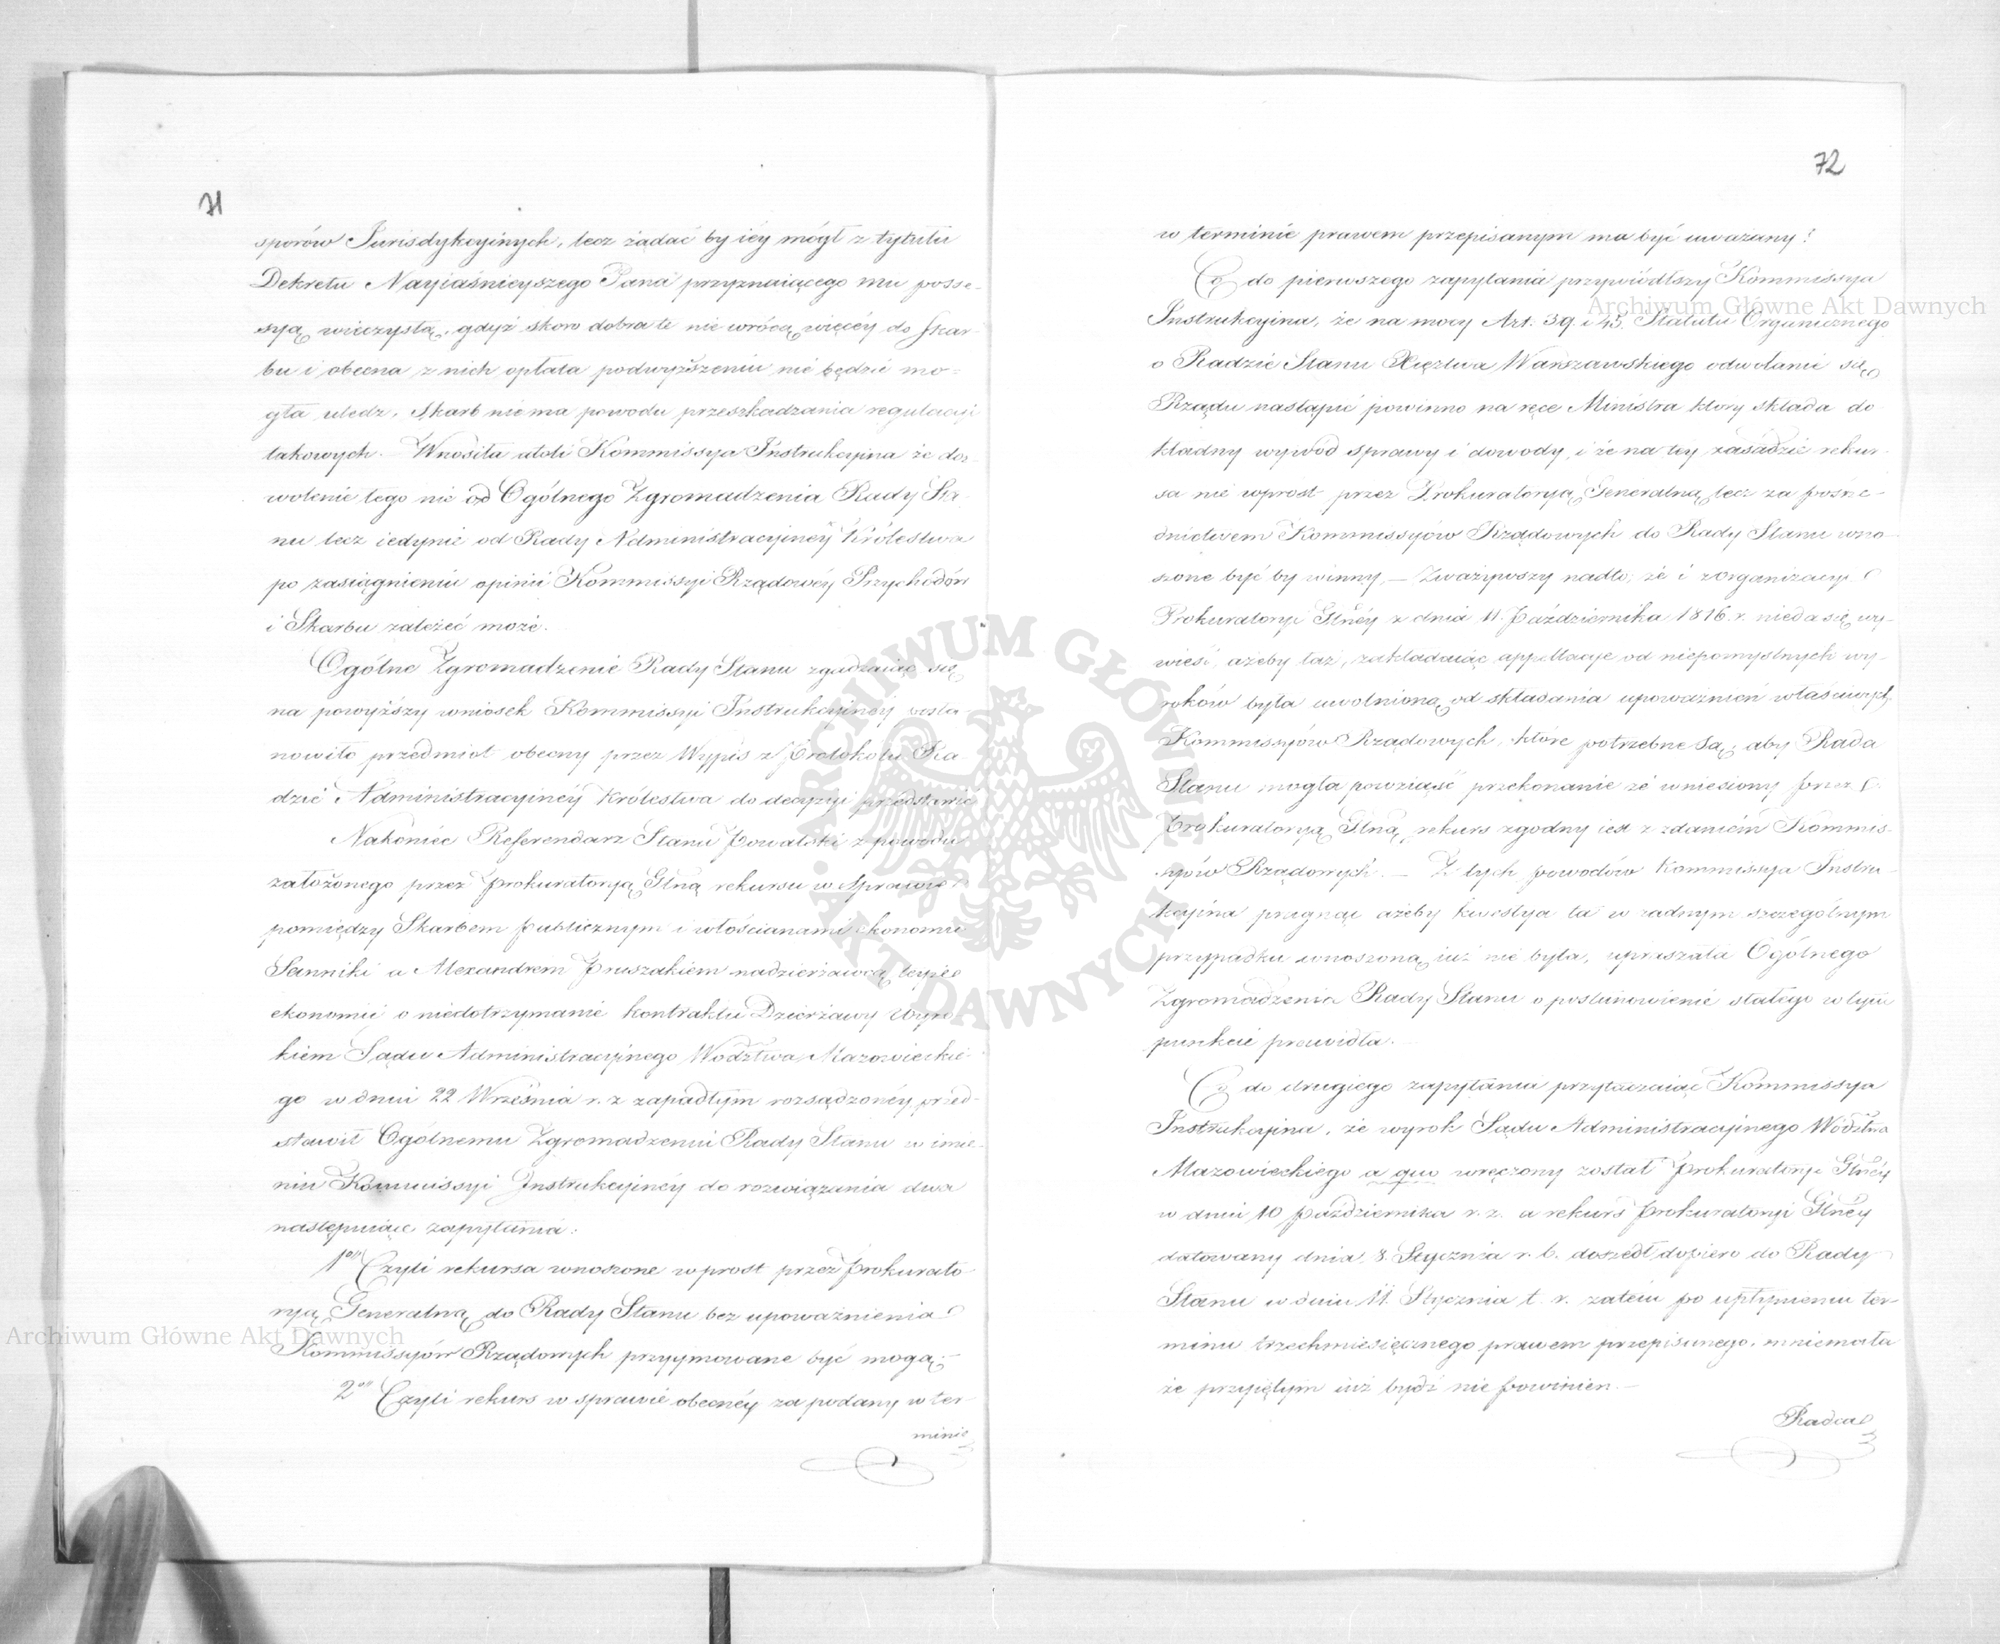 71
sporów Jurisdykcyinych, lecz żądać by iéy mógł z tytułu
Dekretu Nayiaśnieyszego Pana przyznaiącego mu posse-
syą wieczystą, gdyż skoro dobra te nie wrócą więcéy do Skar-
bu i obecna z nich opłata podwyższeniu nie będzie mo-
gła uledz, Skarb nie ma powodu przeszkadzania regulacyi
takowych. Wnosiła atoli Kommissya Instrukcyina że doz-
wolenie tego nie od Ogólnego Zgromadzenia Rady Sta-
nu lecz iedynie od Rady Administracyinéy Królestwa
po zasiągnieniu opinii Kommissyi Rządowéy Przychodów
i Skarbu zależeć może.
Ogólne Zgromadzenie Rady Stanu zgadzaiąc się
na powyższy wniosek Kommissyi Instrukcyinéy posta-
nowiło przedmiot obecny przez Wypis z Protokołu Ra-
dzie Administracyinéy Królestwa do decyzyi przedstawić
Nakoniec Referendarz Stanu Kowalski z powodu
założonego przez Prokuratoryą Glną rekursu w Sprawie
pomiędzy Skarbem publicznym i włościanami ekonomii
Sanniki a Alexandrem Pruszakiem nadzierżawcą teyże
ekonomii o niedotrzymanie kontraktu Dzierżawy Wyro-
kiem Sądu Administracyinego Wodztwa Mazowieckie-
go w dniu 22 Września r. z. zapadłym rozsądzonéy, przed-
stawił Ogólnemu Zgromadzeniu Rady Stanu w imie-
niu Kommissyi Instrukcyinéy do rozwiązania dwa
następuiące zapytania:
1º Czyli rekursa wnoszone wprost przez Prokurato-
ryą Generalną do Rady Stanu bez upoważnienia
Kommissyów Rządowych przyjmowane być mogą;
2º Czyli rekurs w sprawie obecnéy za podany w ter
minie
72
w terminie prawem przepisanym ma być uważany?
Co do pierwszego zapytania przywiódłszy Kommissya
Instrukcyina, że na mocy Art. 39. i 45. Statutu Organicznego
o Radzie Stanu Xięztwa Warszawskiego odwołanie się
Rządu nastąpić powinno na ręce Ministra który składa do-
kładny wywód sprawy i dowody, i że na téy zasadzie rekur-
sa nie wprost przez Prokuratoryą Generalną lecz za pośre-
dnictwem Kommissyów Rządowych do Rady Stanu wno-
szone być by winny, — Zważywszy nadto, że i z organizacyi
Prokuratoryi Glnéy z dnia 11. Października 1816. r. nieda się wy-
wieść ażeby taż, zakładaiąc appellacye od niepomyślnych wy-
roków była uwolnioną od składania upoważnień właściwych
Kommissyów Rządowych, które potrzebne są, aby Rada
Stanu mogła powziąść przekonanie że wniesiony przez
Prokuratoryą Glną rekurs zgodny iest z zdaniem Kommis-
syów Rządowych. — Z tych powodów Kommissya Instru-
kcyina pragnąc ażeby kwestya ta w żadnym szczególnym
przypadku wnoszoną iuż nie była, upraszała Ogólnego
Zgromadzenia Rady Stanu o postanowienie stałego w tym
punkcie prawidła.
Co do drugiego zapytania przytaczaiąc Kommissya
Instrukcyina, że wyrok Sądu Administracyinego Wodztwa
Mazowieckiego a quo wręczony został Prokuratoryi Glnéy
w dniu 10 Października r. z. a rekurs Prokuratoryi Glnéy
datowany dnia 8. Stycznia r. b. doszedł dopiero do Rady
Stanu w dniu 11. Stycznia t. r. zatém po upłynieniu ter-
minu trzechmiesięcznego prawem przepisanego, mniemała
że przyiętym iuż bydź nie powinien. —
Radca
Archiwum Główne Akt Dawnych
Archiwum Główne Akt Dawnych
ARCHIWUM GŁÓWNE AKT DAWNYCH